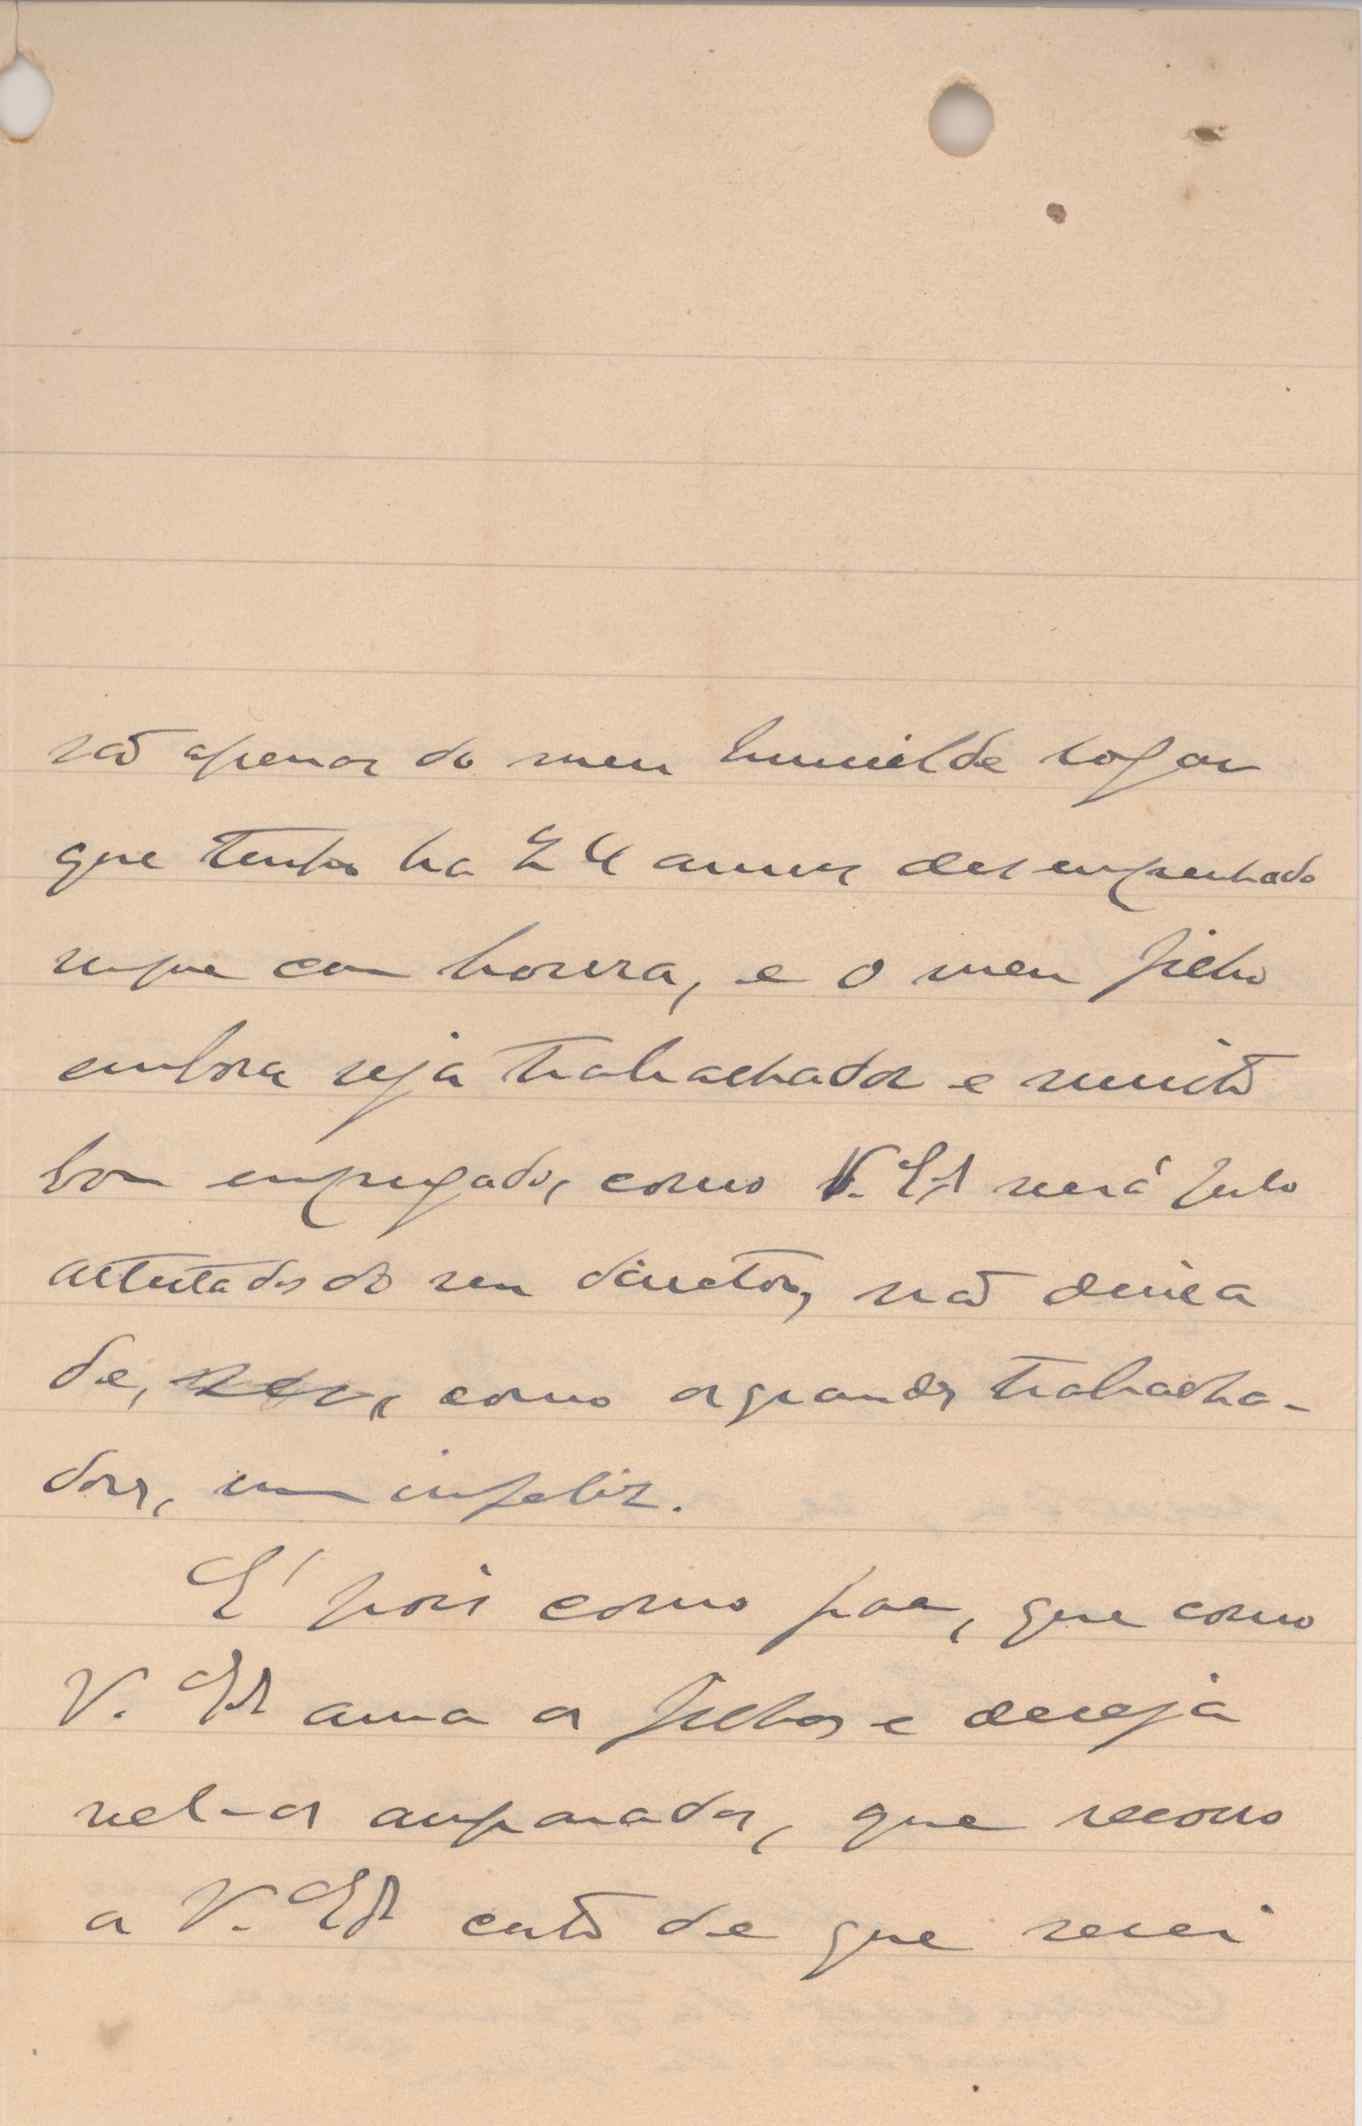 são apenas do meu humilde logar
que tenho ha 24 annos desempenhado
sempre com honra, e o meu filho
embora seja trabalhador e muito
bom empregado, como V. Exª verá pelo
attestados do seu director, não deixa
de, ser, como os grandes trabalha-
dores, um infeliz.
E' pois como pae, que como
V. Exª ama os filhos e deseja
vel-os amparados, que recorro
a V. Exª certo de que serei